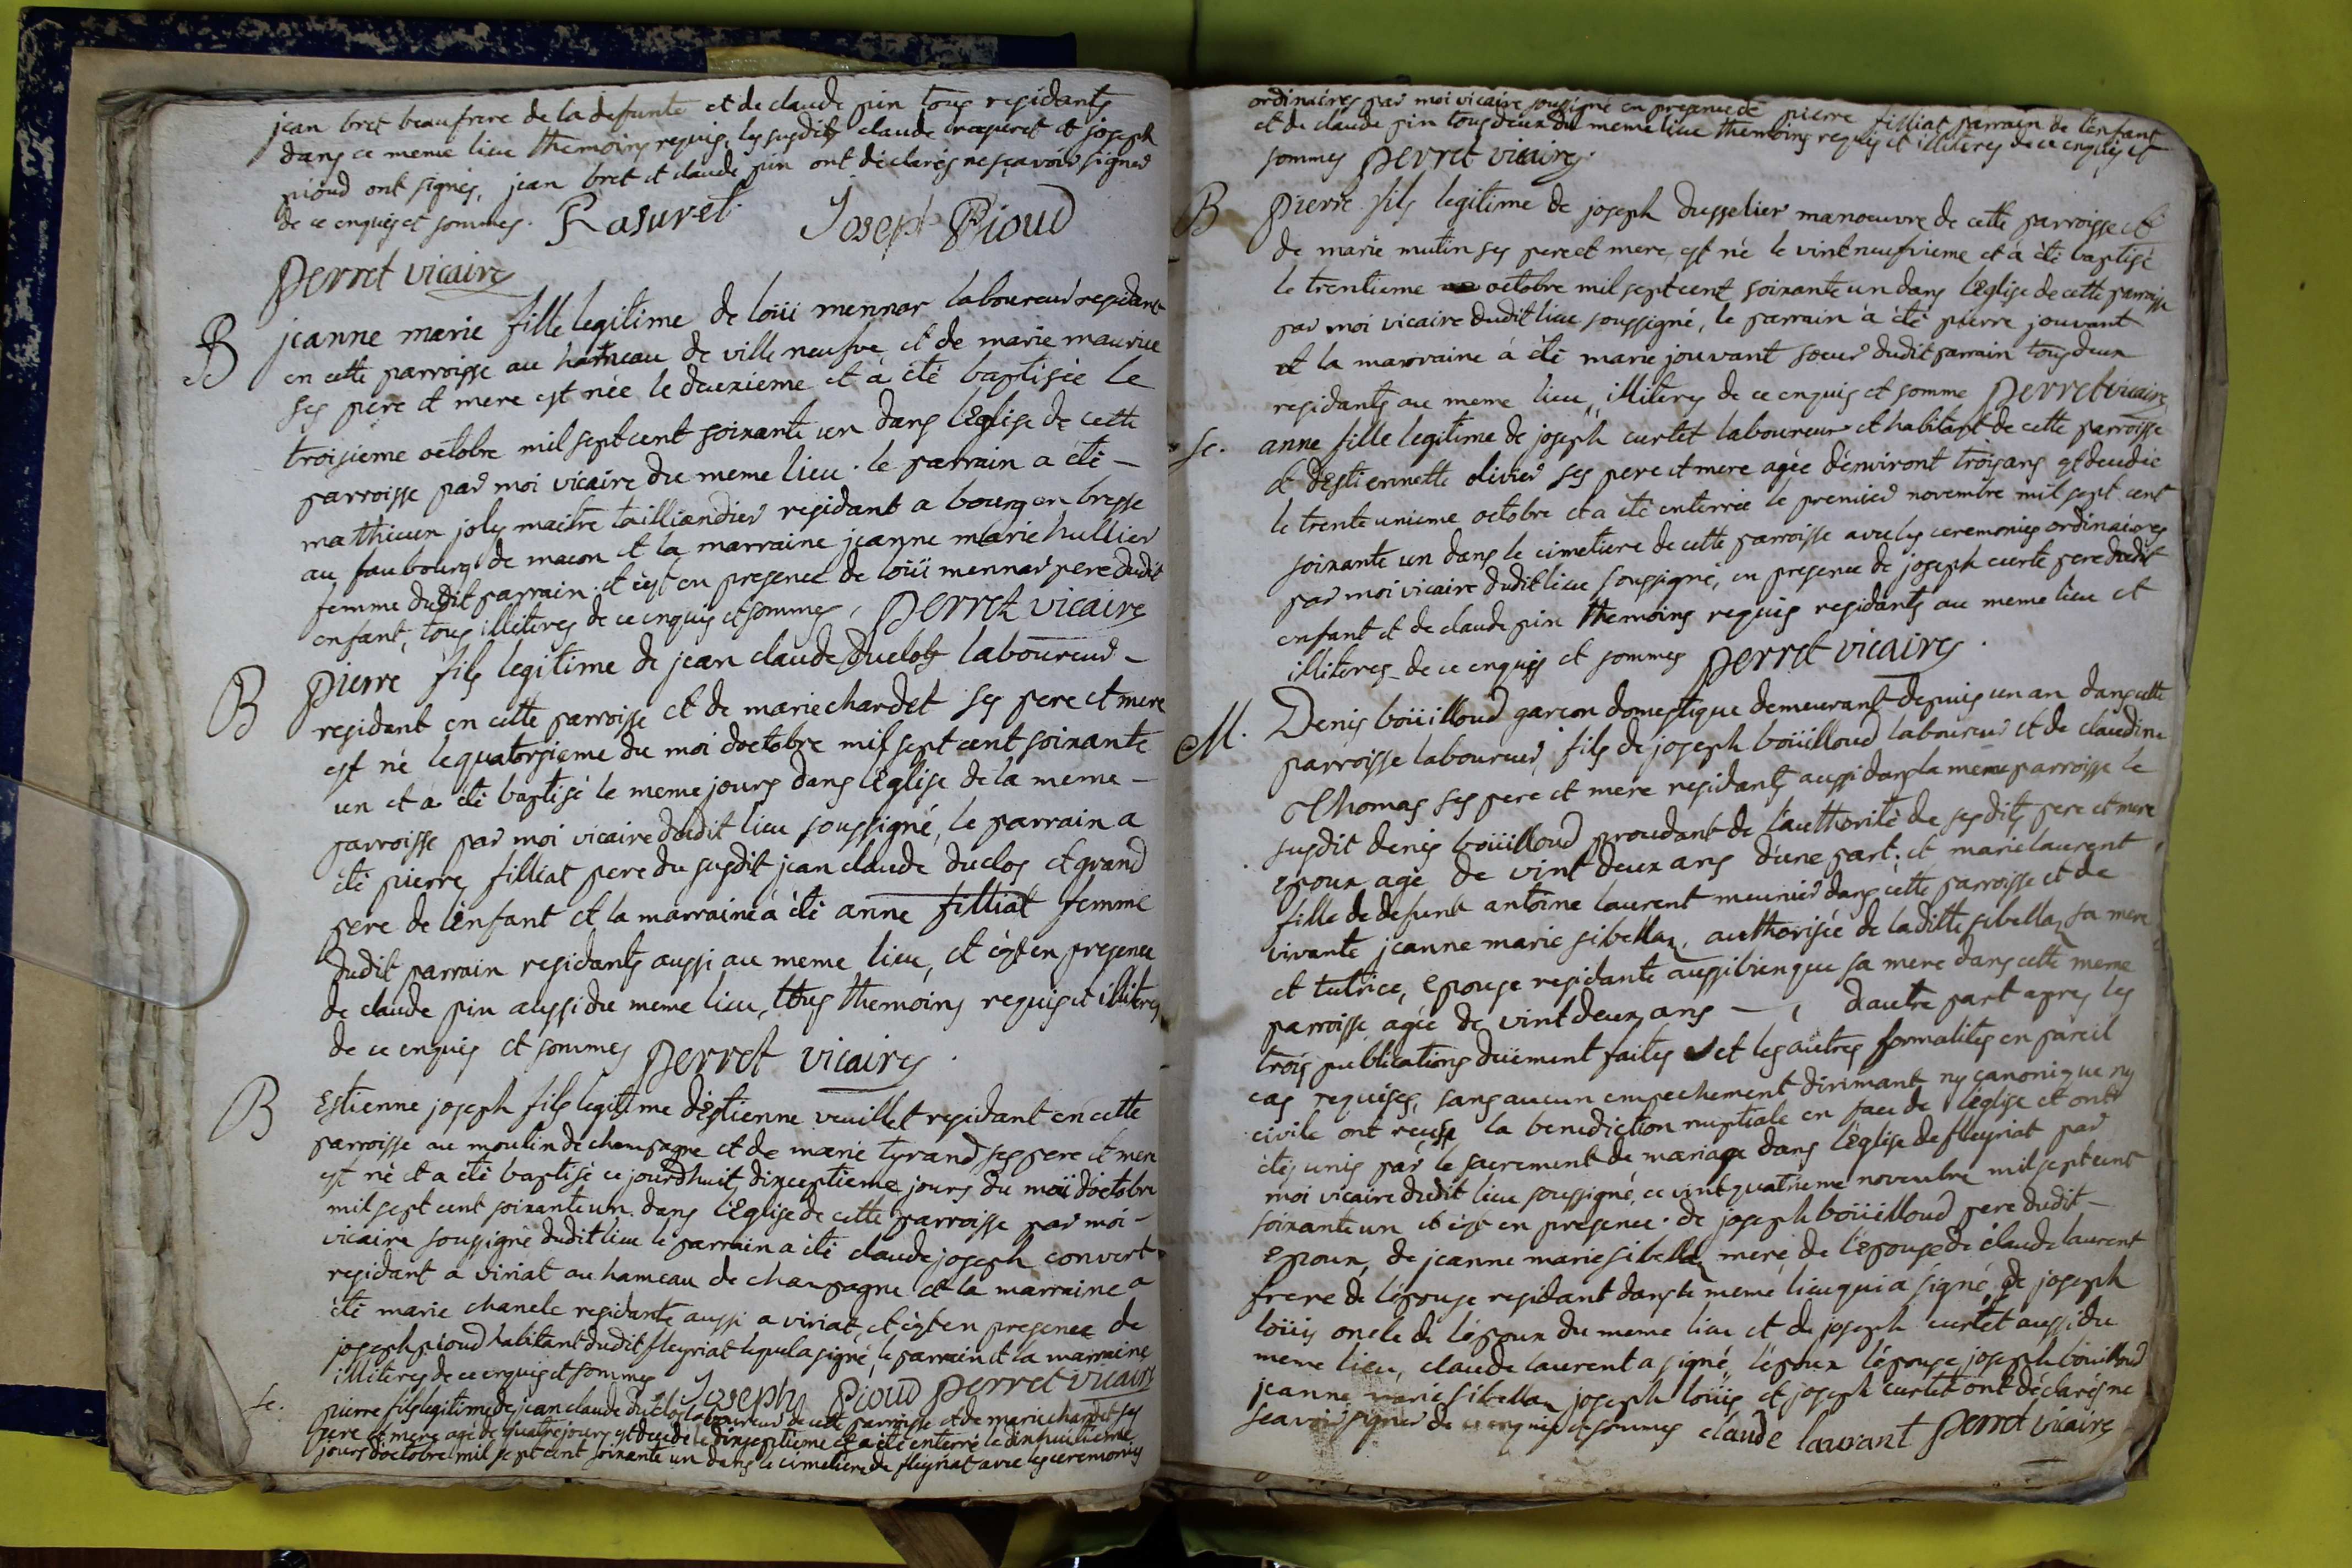 jean bret beaufrere de la defunte et de claude pin tous residants
dans ce meme lieu themoins requis, les susdits claude et joseph
pioud ont signés, jean bret et claude pin ont déclarés ne sçavoir signer
de ce enquis et sommes. Rasurel Joseph Pioud
perret vicaire
B jeanne marie fille legitime de loüi mennar laboureur residant
en cette parroisse au hameau de ville neufve, et de marie maurice
ses pere et mere est née le deuxieme et à eté baptisée le
troisieme octobre mil sept cent soixante un dans l'Eglise de cette
parroisse par moi vicaire du meme lieu. le parrain a eté -
mathieu joly maitre tailliandier residant a bourg en bresse
au faubourg de macon et la marraine jeanne marie hullier
femme dudit parrain. et c'est en presence de loüi mennar pere dudit
enfant, tous illiteres de ce enquis et sommes, perret vicaire
B pierre fils legitime de jean claude duclos laboureur -
residant en cette parroisse et de marie chardet ses pere et mere
est né le quatorsieme du moi doctobre mil sept cent soixante
un et a eté baptisé le meme jours dans l'Eglise de la meme -
parroisse par moi vicaire dudit lieu soussigné, le parrain a
eté pierre filliat pere du susdit jean claude duclos et grand
pere de l'enfant et la marraine à eté anne filliat femme
dudit parrain residants aussi au meme lieu, et c'est en presence
de claude pin aussi du meme lieu, tous themoins requis et illiteres
de ce enquis et sommes perret vicaire.
B Estienne joseph fils legitime d'Estienne veuillet residant en cette
parroisse au moulin de champagne et de marie tyrand ses pere et mere
est né et a eté baptisé ce jourdhuit dixceptieme jours du moi d'octobre
mil sept cent soixante un. dans l'Eglise de cette parroisse par moi -
vicaire soussigné dudit lieu le parrain a eté claude joseph convert
residant a viriat au hameau de champagne et la marraine a
eté marie chanele residante aussi a viriat, et c'est en presence de
joseph pioud habitant dudit fleyriat lequel a signé, le parrain et la marraine
illiteres de ce enquis et sommes Joseph Pioud perret vicaire
Se. pierre fils legitime de jean claude duclos laboureur de cette parroisse et de marie chardet ses
pere et mere agé de quatre jours est decedé le dixseptieme et a eté enterré le dixhuitieme
jours d'octobre mil sept cent soixante un dans le cimetiere de fleyriat avec les ceremonies
ordinaires par moi vicaire soussigné en presence de pierre filliat parrain de l'enfant
et de claude pin tous deux du meme lieu themoins requis et illiteres de ce enquis et
sommes perret vicaire.
B pierre fils legitime de joseph dusselier manoeuvre de cette parroisse et
de marie mutin ses pere et mere, est né le vint neufvieme et à eté baptisé
le trentieme octobre mil sept cent soixante un dans l'Eglise de cette parroisse
par moi vicaire dudit lieu soussigné, le parrain à eté pierre jouvant
et la marraine à eté marie jouvant soeur dudit parrain tous deux
residants au meme lieu, illiteres de ce enquis et somme perret vicaire
Se. anne fille legitime de joseph curtet laboureur et habitant de cette parroisse
et d'Estiennette olivier ses pere et mere agée d'environt trois ans est decedée
le trente unieme octobre et a eté enterrée le premier novembre mil sept cent
soixante un dans le cimetiere de cette parroisse avec les ceremonies ordinaires
par moi vicaire dudit lieu soussigné, en presence de joseph curte pere dudit
enfant et de claude pin themoins requis residants au meme lieu et
illiteres de ce enquis et sommes perret vicaire.
M. Denis boüilloud garcon domestique demeurant depuis un an dans cette
parroisse laboureur, fils de joseph boüilloud laboureur et de claudine
Thomas ses pere et mere residants aussi dans la meme parroisse le
susdit denis boüilloud proudant de l'authorité de ses dits pere et mere
epoux agé de vint deux ans d'une part; et marie laurent
fille de defunt antoine laurent meunier dans cette parroisse et de
vivante jeanne marie sibellaz, authorisée de la ditte sibellaz sa mere
et tutrice, epouse residante aussi bien que sa mere dans cette meme
parroisse agée de vint deux ans - , d'autre part apres les
trois publications duëment faites et les autres formalites en pareil
cas requises, sans aucun empechement dirimant ny canonique ny
civile ont reçus la benediction nuptiale en face de l'eglise et ont
etés unis par le sacrement de mariage dans l'Eglise de fleyriat par
moi vicaire dudit lieu soussigné, ce vint quatrieme novembre mil sept cent
soixante un et c'est en presence. de joseph boüilloud pere dudit -
Epoux, de jeanne marie sibellaz mere de l'epouse de claude laurent
frere de l'épouse residant dans le meme lieu qui a signé, de joseph
loüis oncle de l'époux du meme lieu et de joseph curtet aussi du
meme lieu, claude laurent a signé, l'époux l'épouse joseph boüilloud
jeanne marie sibellaz joseph loüis et joseph curtet ont déclarés ne
scavoir signer de ce enquis et sommes claude laurant perret vicaire